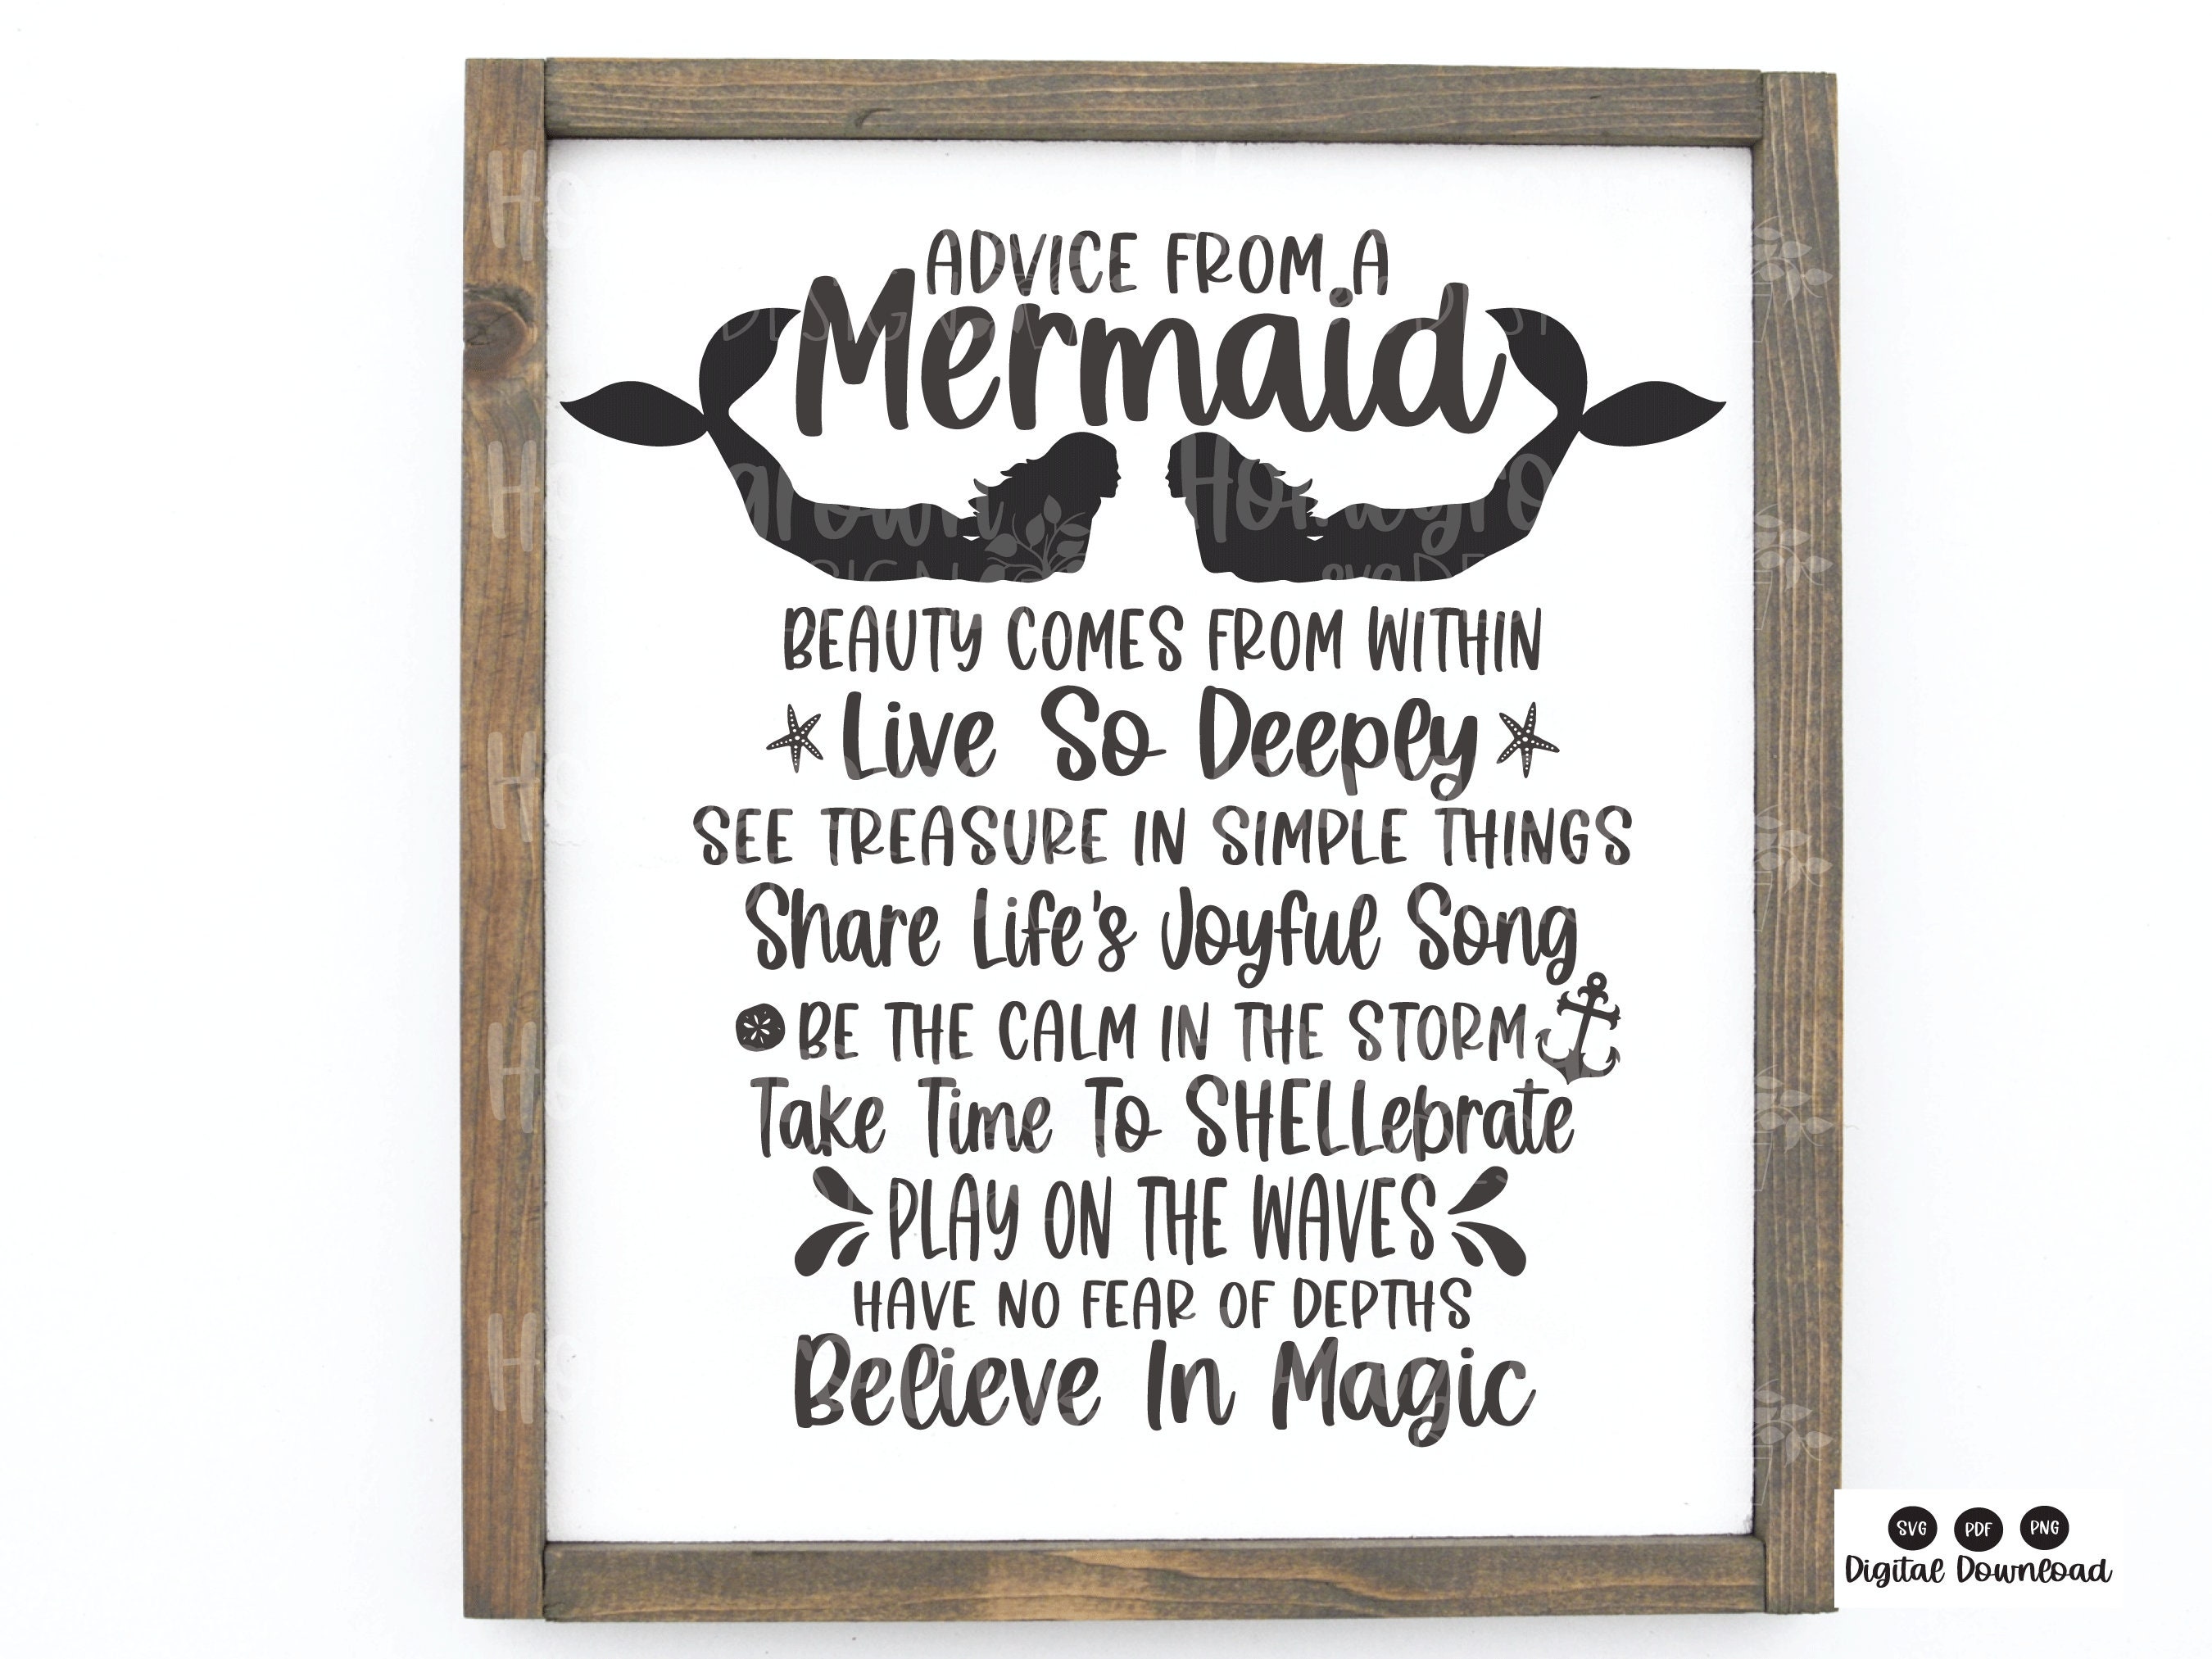 ADVICE FROM A
Mermaid
BEAUTY COMES FROM WITHIN
Live So Deeply
SEE TREASURE IN SIMPLE THINGS
Share Life's Joyful Song
BE THE CALM IN THE STORM
Take Time To SHELLebrate
PLAY ON THE WAVES
HAVE NO FEAR OF DEPTHS
Believe In Magic
SVG PDF PNG
Digital Download